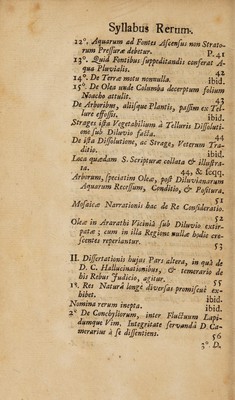 Syllabus Rerum.
12°. Aquarum ad Fontes Ascensus non Strato-
rum Pressuræ debetur. P.41
13°. Quid Fontibus suppeditandis conferat A-
qua Pluvialis. 42
14°. De Terræ motu nonnulla. ibid.
15°. De Olea unde Columba decerptum folium
Noacho attulit. 43
De Arboribus, aliisque Plantis, passim ex Tel-
lure effossis, ibid.
Strages ista Vegetabilium à Telluris Dissoluti-
one sub Diluvio facta. 44
De ista Dissolutione, ac Strage, Veterum Tra-
ditio. ibid.
Loca quædam S. Scripturæ collata & illustra-
ta. 44, & seqq.
Arborum, speciatim Oleæ, post Diluvianarum
Aquarum Recessum, Conditio, & Positura.
51
Mosaicæ Narrationis hac de Re Consideratio.
52
Oleæ in Ararathi Viciniâ sub Diluvio extir-
patæ; cum in illa Regione nullæ hodie cre-
scentes reperiantur. 53
II. Dissertationis hujus Pars altera, in quâ de
D. C. Hallucinationibus, & temerario de
his Rebus Judicio, agitur. 55
1°. Res Naturâ longè diversas promiscuè ex-
hibet. ibid.
Nomina rerum inepta. ibid.
2° De Conchyliorum, inter Fluctuum Lapi-
dumque Vim, Integritate servandâ D. Ca-
merarius à se dissentiens. 56
3° D.